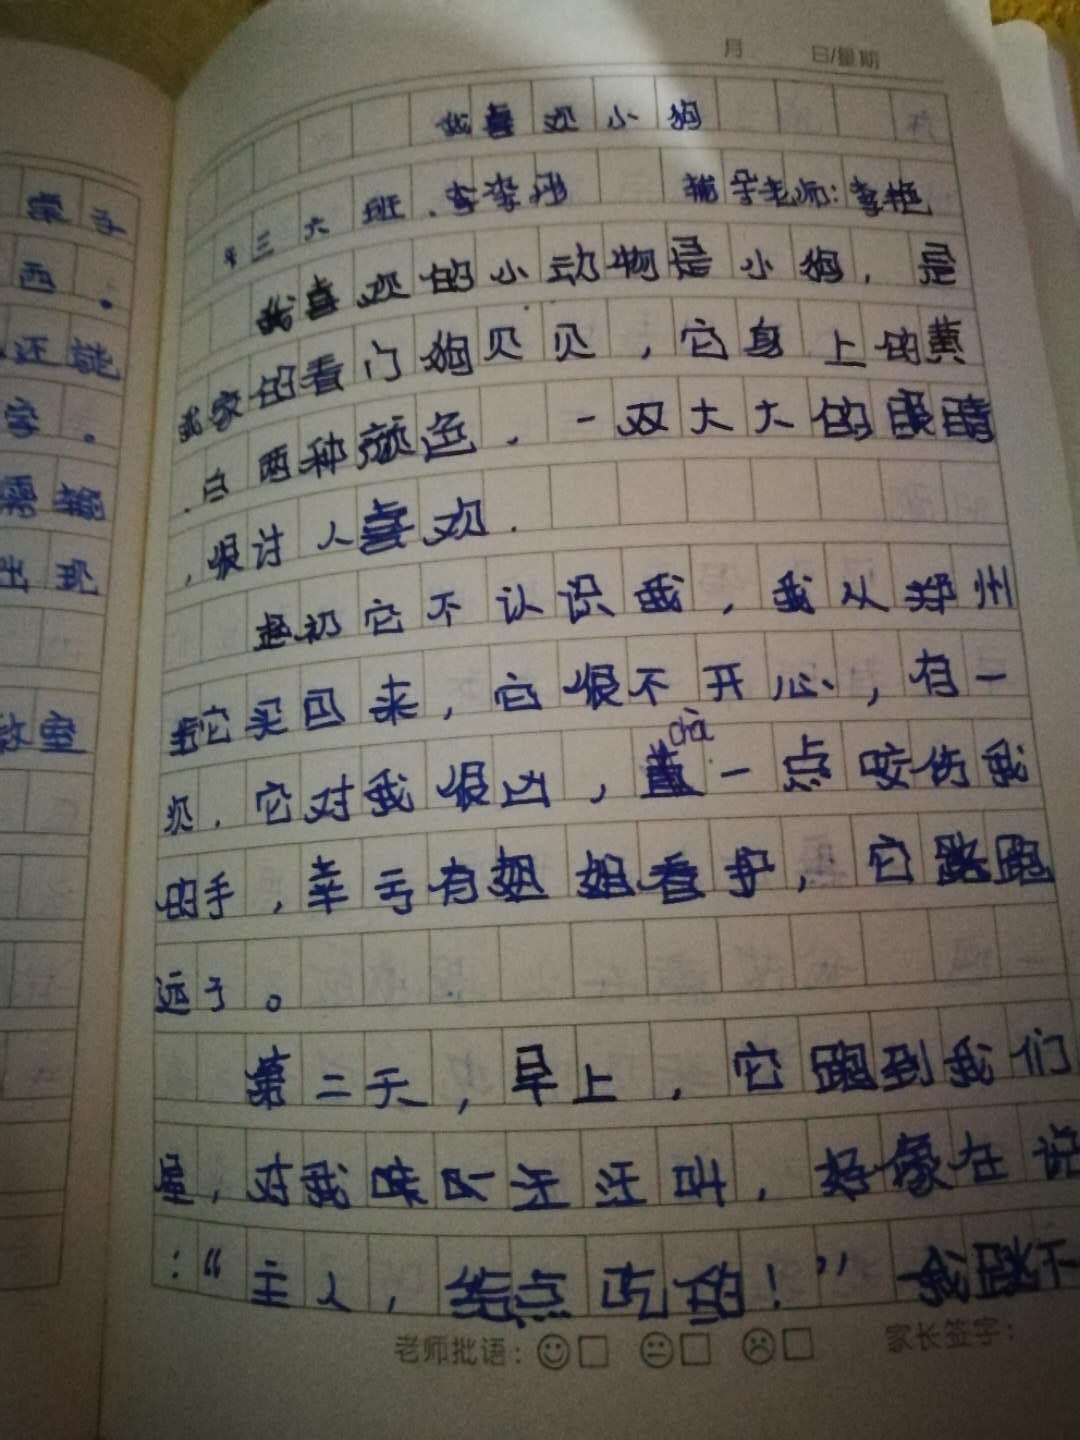 蒙子
西。
还能
字。
需
出现
教室
月 日/星期
我喜欢小狗
三六班.李 老师:李艳
我喜欢的小动物是小狗,是
我家的看门狗贝贝,它身上的黄
.白两种颜色.一双大大的眼睛
,很讨人喜欢.
起初它不认识我,我从郑州
它买回来,它很不开心,有一
次.它对我很凶,chà一点咬伤我
的手,幸亏有姐姐看护,它跳跑
远了。
第二天,早上,它跑到我们
屋,对我 汪汪叫,好像在说
:“主人,给点吃的!”我跳下
老师批语: 家长签字: